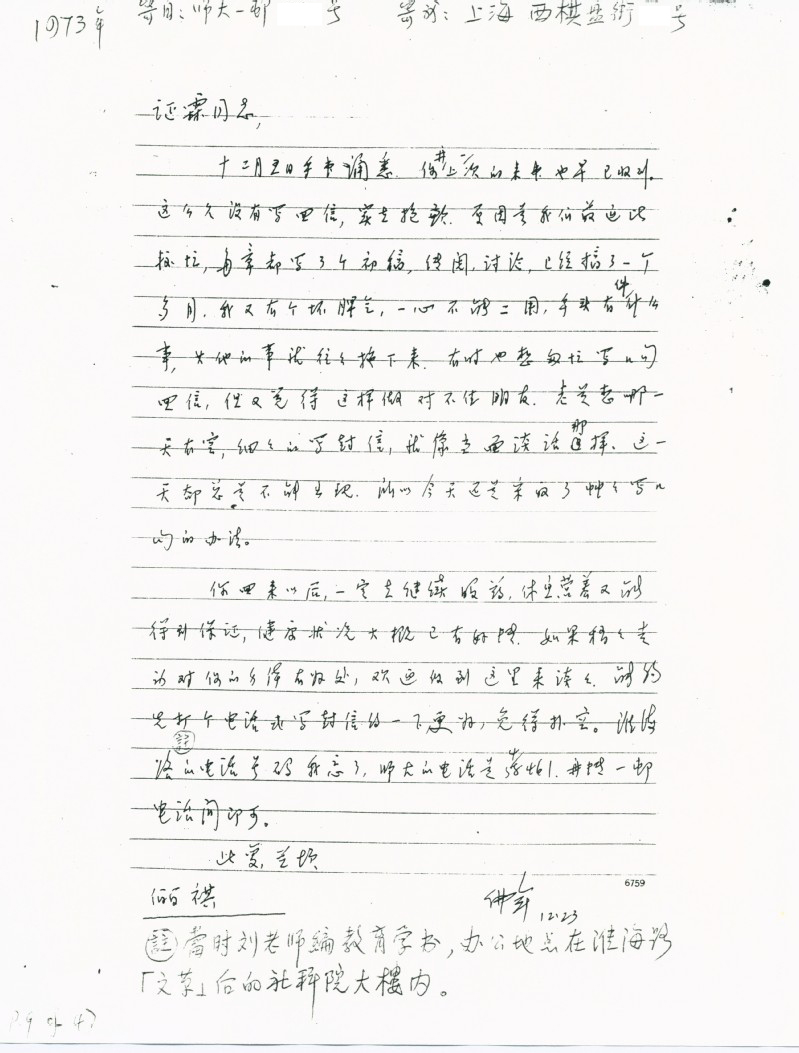 1973年 寄自：师大一邨 号 寄致：上海 西棋盘街 号
证霖同志，
十二月五日手书诵悉。你上次的来书也早已收到。
这么久没有写回信，实在抱歉。原因是我们最近比
较忙，每章都写了个初稿，传阅，讨论，已经搞了一个
多月。我又有个坏脾气，一心不能二用，手头有件什么
事，其他的事就往往搁下来。有时也想匆忙写几句
回信，但又觉得这样做对不住朋友。老是想哪一
天有空，细细的写封信，就像当面谈话那样。这一
天都总是不能出现。所以今天还是采取了草草写几
句的办法。
你回来以后，一定在继续服药，休息营养又能
得到保证，健康状况大概已有好转。如果稍稍走
动对你的身体有好处，欢迎你到这里来谈谈。能够
先打个电话或写封信约一下更好，免得扑空。淮海
路的电话号码我忘了，师大的电话是 再转一邨
电话间即可。
此复，并颂
佛年
12.23
伯祺
6759
註 當时刘老师编教育学书，办公地点在淮海路
「文革」后的社科院大樓内。
P.9 of 47